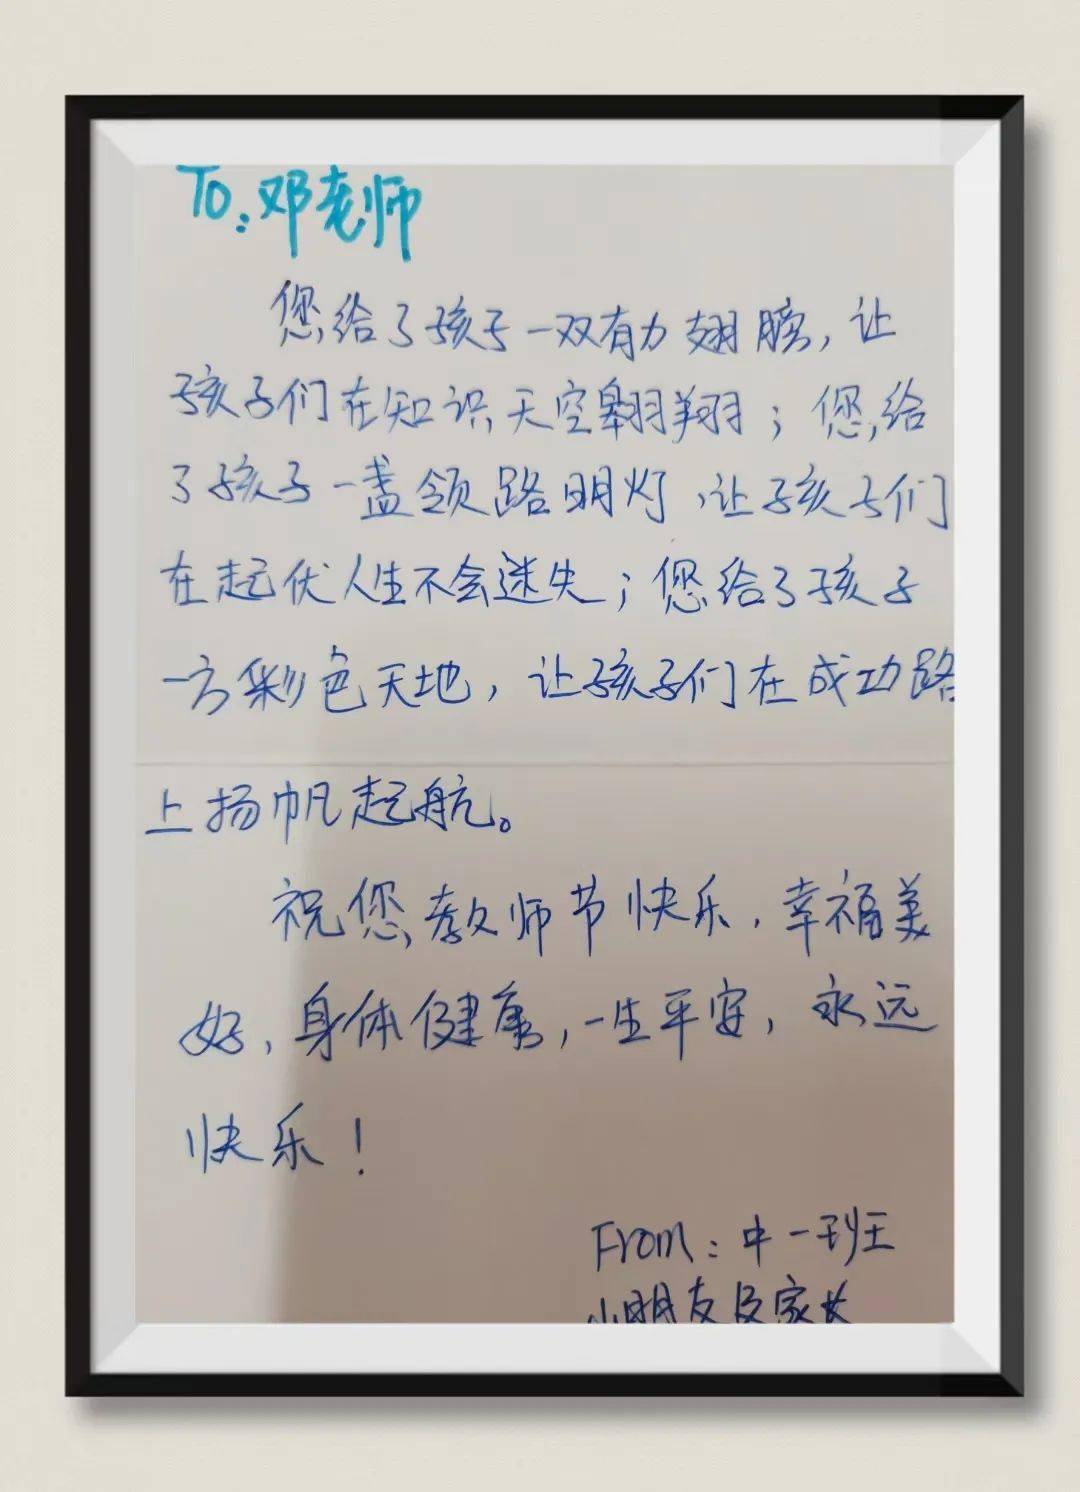 To:邓老师
您给了孩子一双有力翅膀，让
孩子们在知识天空翱翔；您给
了孩子一盏领路明灯，让孩子们
在起伏人生不会迷失；您给了孩子
一方彩色天地，让孩子们在成功路
上扬帆起航。
祝您教师节快乐，幸福美
好，身体健康，一生平安，永远
快乐！
From：中一班
小朋友及家长